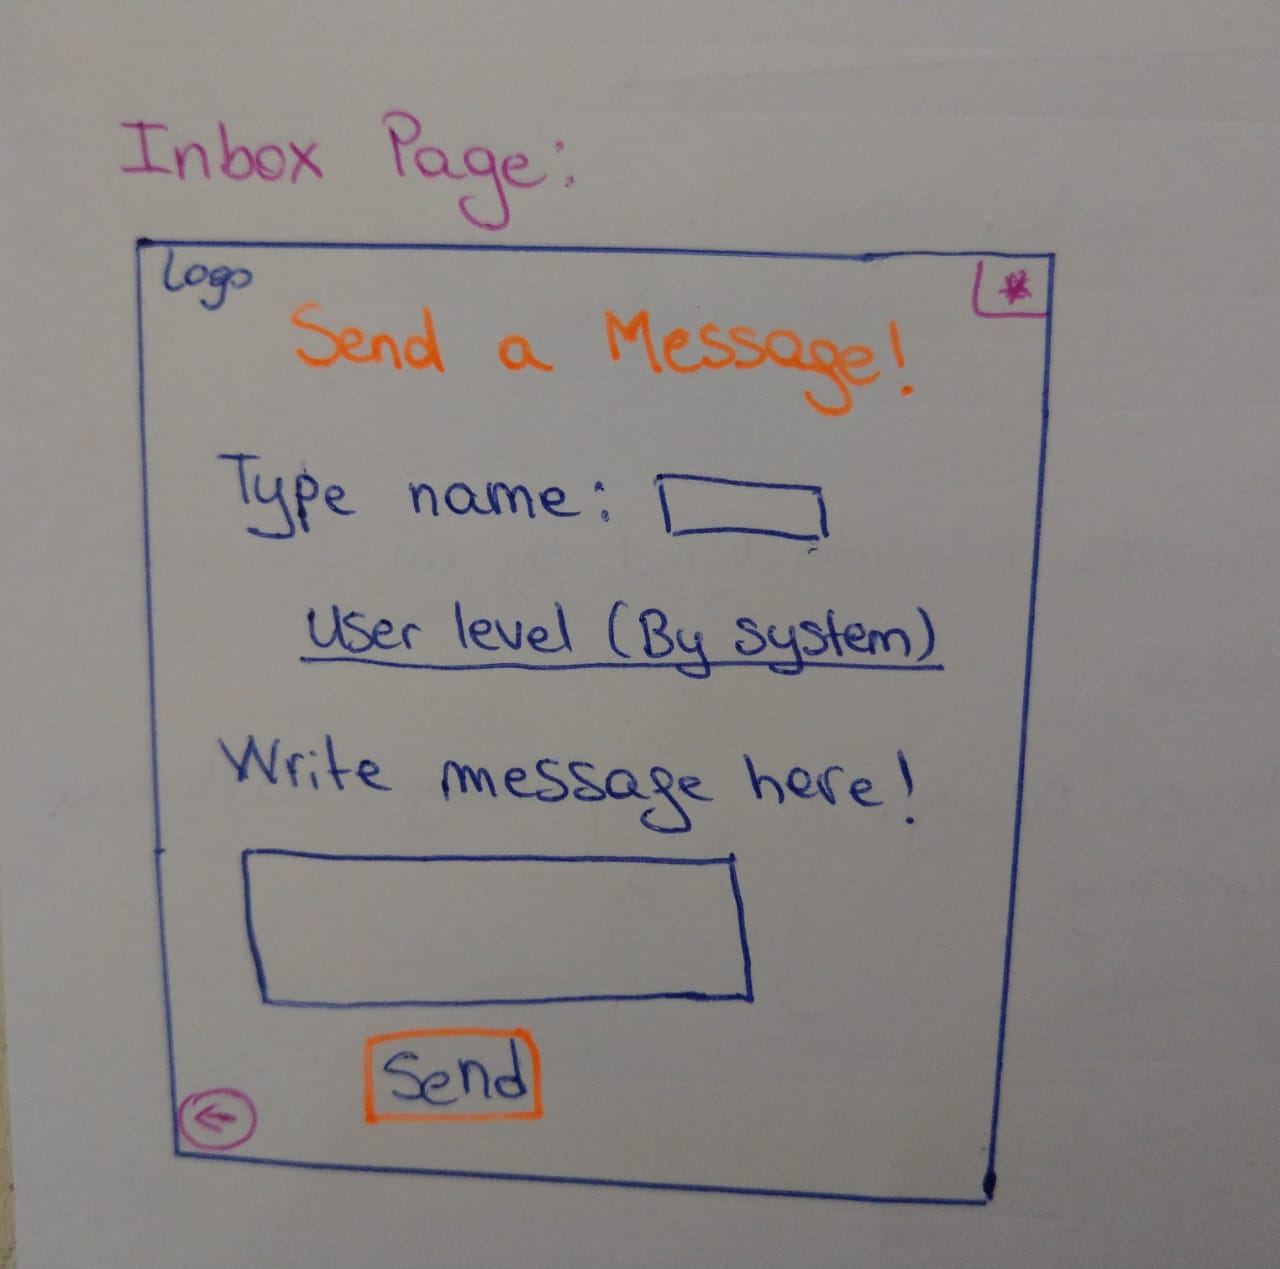 Inbox Page:
Logo
*
Send a Message!
Type name:
User level (By system)
Write message here!
Send
←